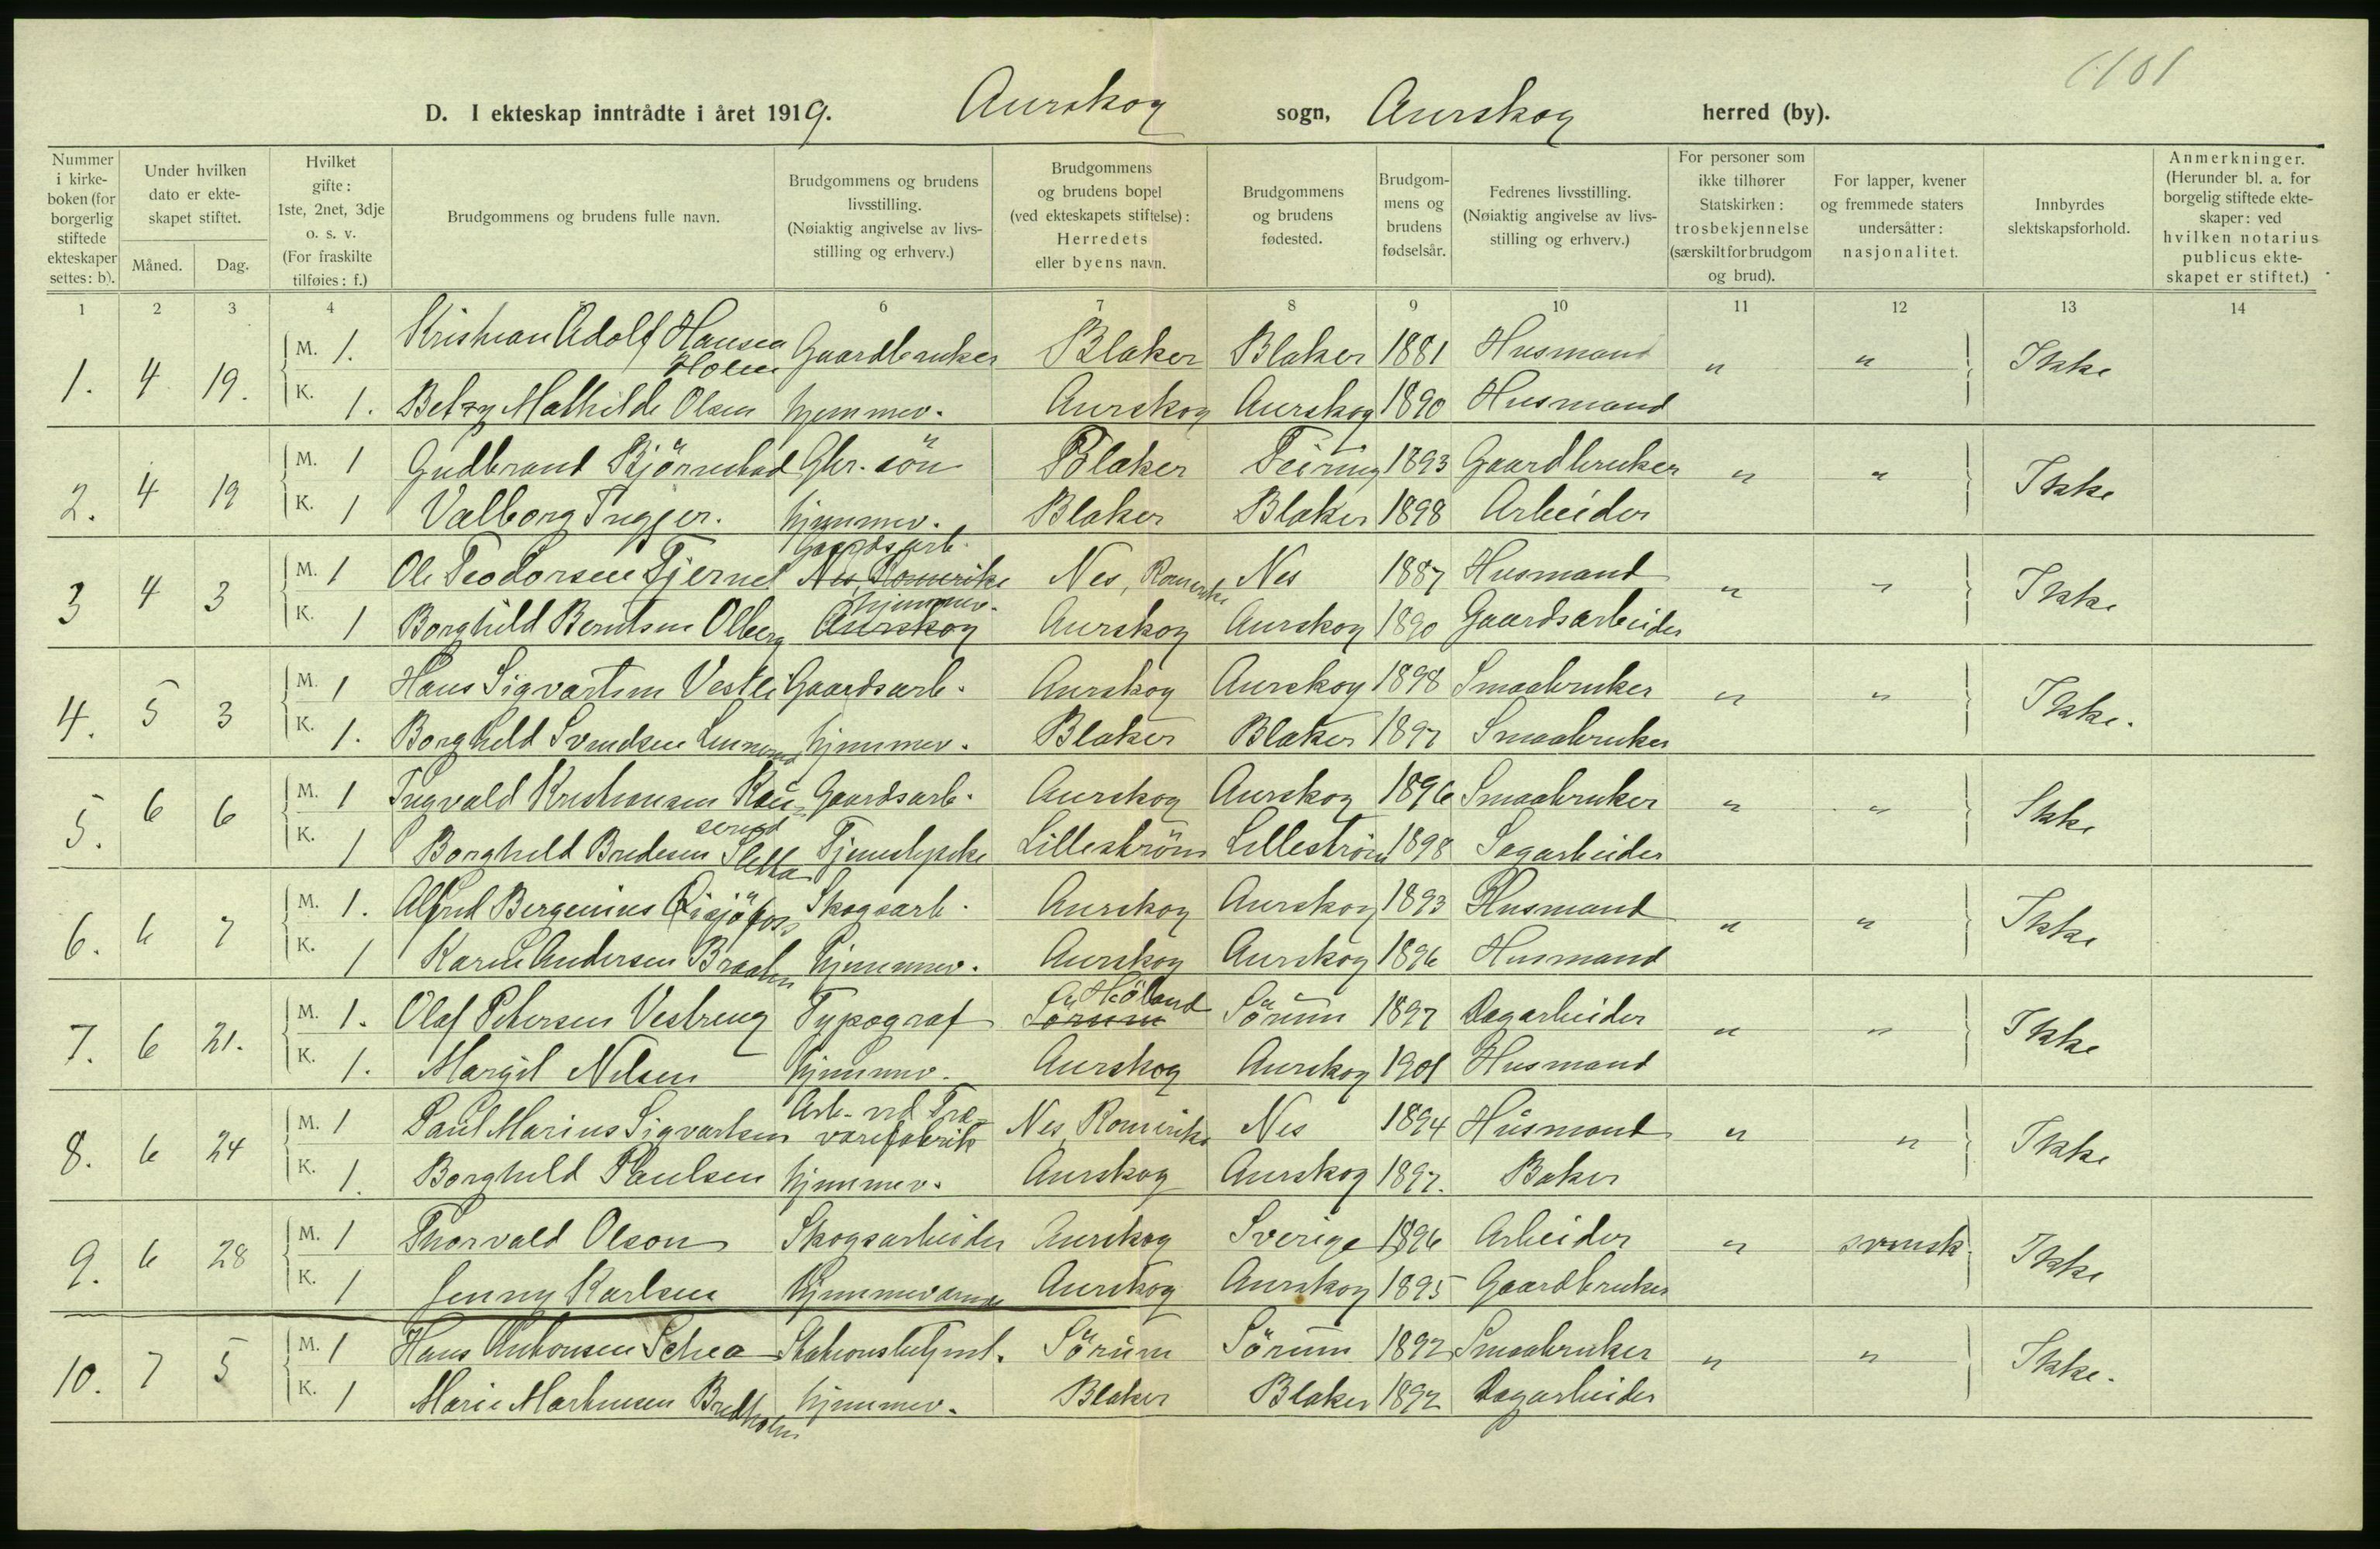 1101
D. I ekteskap inntrådte i året 1919. Aurskog sogn, Aurskog herred (by).
Nummer i kirke- boken (for borgerlig stiftede ekteskaper settes: b).
Under hvilken dato er ekte- skapet stiftet.
Måned. Dag.
Hvilket gifte: 1ste, 2net, 3dje o. s. v. (For fraskilte tilføies: f.)
Brudgommens og brudens fulle navn.
Brudgommens og brudens livsstilling. (Nøiaktig angivelse av livs- stilling og erhverv.)
Brudgommens og brudens bopel (ved ekteskapets stiftelse): Herredets eller byens navn.
Brudgommens og brudens fødested.
Brudgom- mens og brudens fødselsår.
Fedrenes livsstilling. (Nøiaktig angivelse av livs- stilling og erhverv.)
For personer som ikke tilhører Statskirken: trosbekjennelse (særskilt for brudgom og brud).
For lapper, kvener og fremmede staters undersåtter: nasjonalitet.
Innbyrdes slektskapsforhold.
Anmerkninger. (Herunder bl. a. for borgelig stiftede ekte- skaper: ved hvilken notarius publicus ekte- skapet er stiftet.)
1 2 3 4 5 6 7 8 9 10 11 12 13 14
1. 4 19. M. 1. Kristian Adolf Hansen Holm Gaardbruker Blaker Blaker 1881 Husmand " " Ikke
K. 1. Betzy Mathilde Olsen hjemmev. Aurskog Aurskog 1890 Husmand
2. 4 19 M. 1 Gudbrand Björnstad Gbr. sön Blaker Feiring 1893 Gaardbruker " " Ikke
K. 1 Valborg Trygger. hjemmev. Blaker Blaker 1898 Arbeider
3 4 3 M. 1 Ole Teodorsen Tjernes Gaardsarb. Nes, Romerike Nes, Romerike Nes 1887 Husmand " " Ikke
K. 1 Borghild Berntsen Olberg hjemmev. Aurskog Aurskog Aurskog 1890 Gaardsarbeider
4. 5 3 M. 1 Hans Sigvartsen Vestli Gaardsarb. Aurskog Aurskog 1898 Smaabruker " " Ikke.
K. 1. Borghild Svendsen hjemmev. Blaker Blaker 1897 Smaabruker
5. 6 6 M. 1 Ingvald Kristiansen Kau- serud Gaardsarb. Aurskog Aurskog 1896 Smaabruker " " Ikke
K. 1 Borghild Bredesen Sletta Tjenestepike Lilleström Lilleström 1898 Sagarbeider
6. 6 7 M. 1. Alfred Bergenius Skogsarb. Aurskog Aurskog 1893 Husmand " " Ikke
K. 1 Karen Andersen Braaten hjemmev. Aurskog Aurskog 1896 Husmand
7. 6 21. M. 1. Olaf Petersen Vestreng Typograf Sörum Höland Sörum 1897 Dagarbeider " " Ikke
K. 1. Margit Nilsen hjemmev. Aurskog Aurskog 1901 Husmand
8. 6 24 M. 1 Paul Marius Sigvartsen Arb. ved Træ- varefabrik Nes, Romerike Nes 1894 Husmand " " Ikke
K. 1. Borghild Paulsen hjemmev. Aurskog Aurskog 1897. Baker
9. 6 28 M. 1 Thorvald Olson Skogsarbeider Aurskog Sverige 1896 Arbeider " svensk. Ikke
K. 1 Jenny Karlsen hjemmeværende Aurskog Aurskog 1895 Gaardbruker
10. 7 5 M. 1 Hans Antonsen Schea Stationsbetjent. Sörum Sörum 1892 Smaabruker " " Ikke.
K. 1 Marie Martinsen Bredholm hjemmev. Blaker Blaker 1892 Dagarbeider